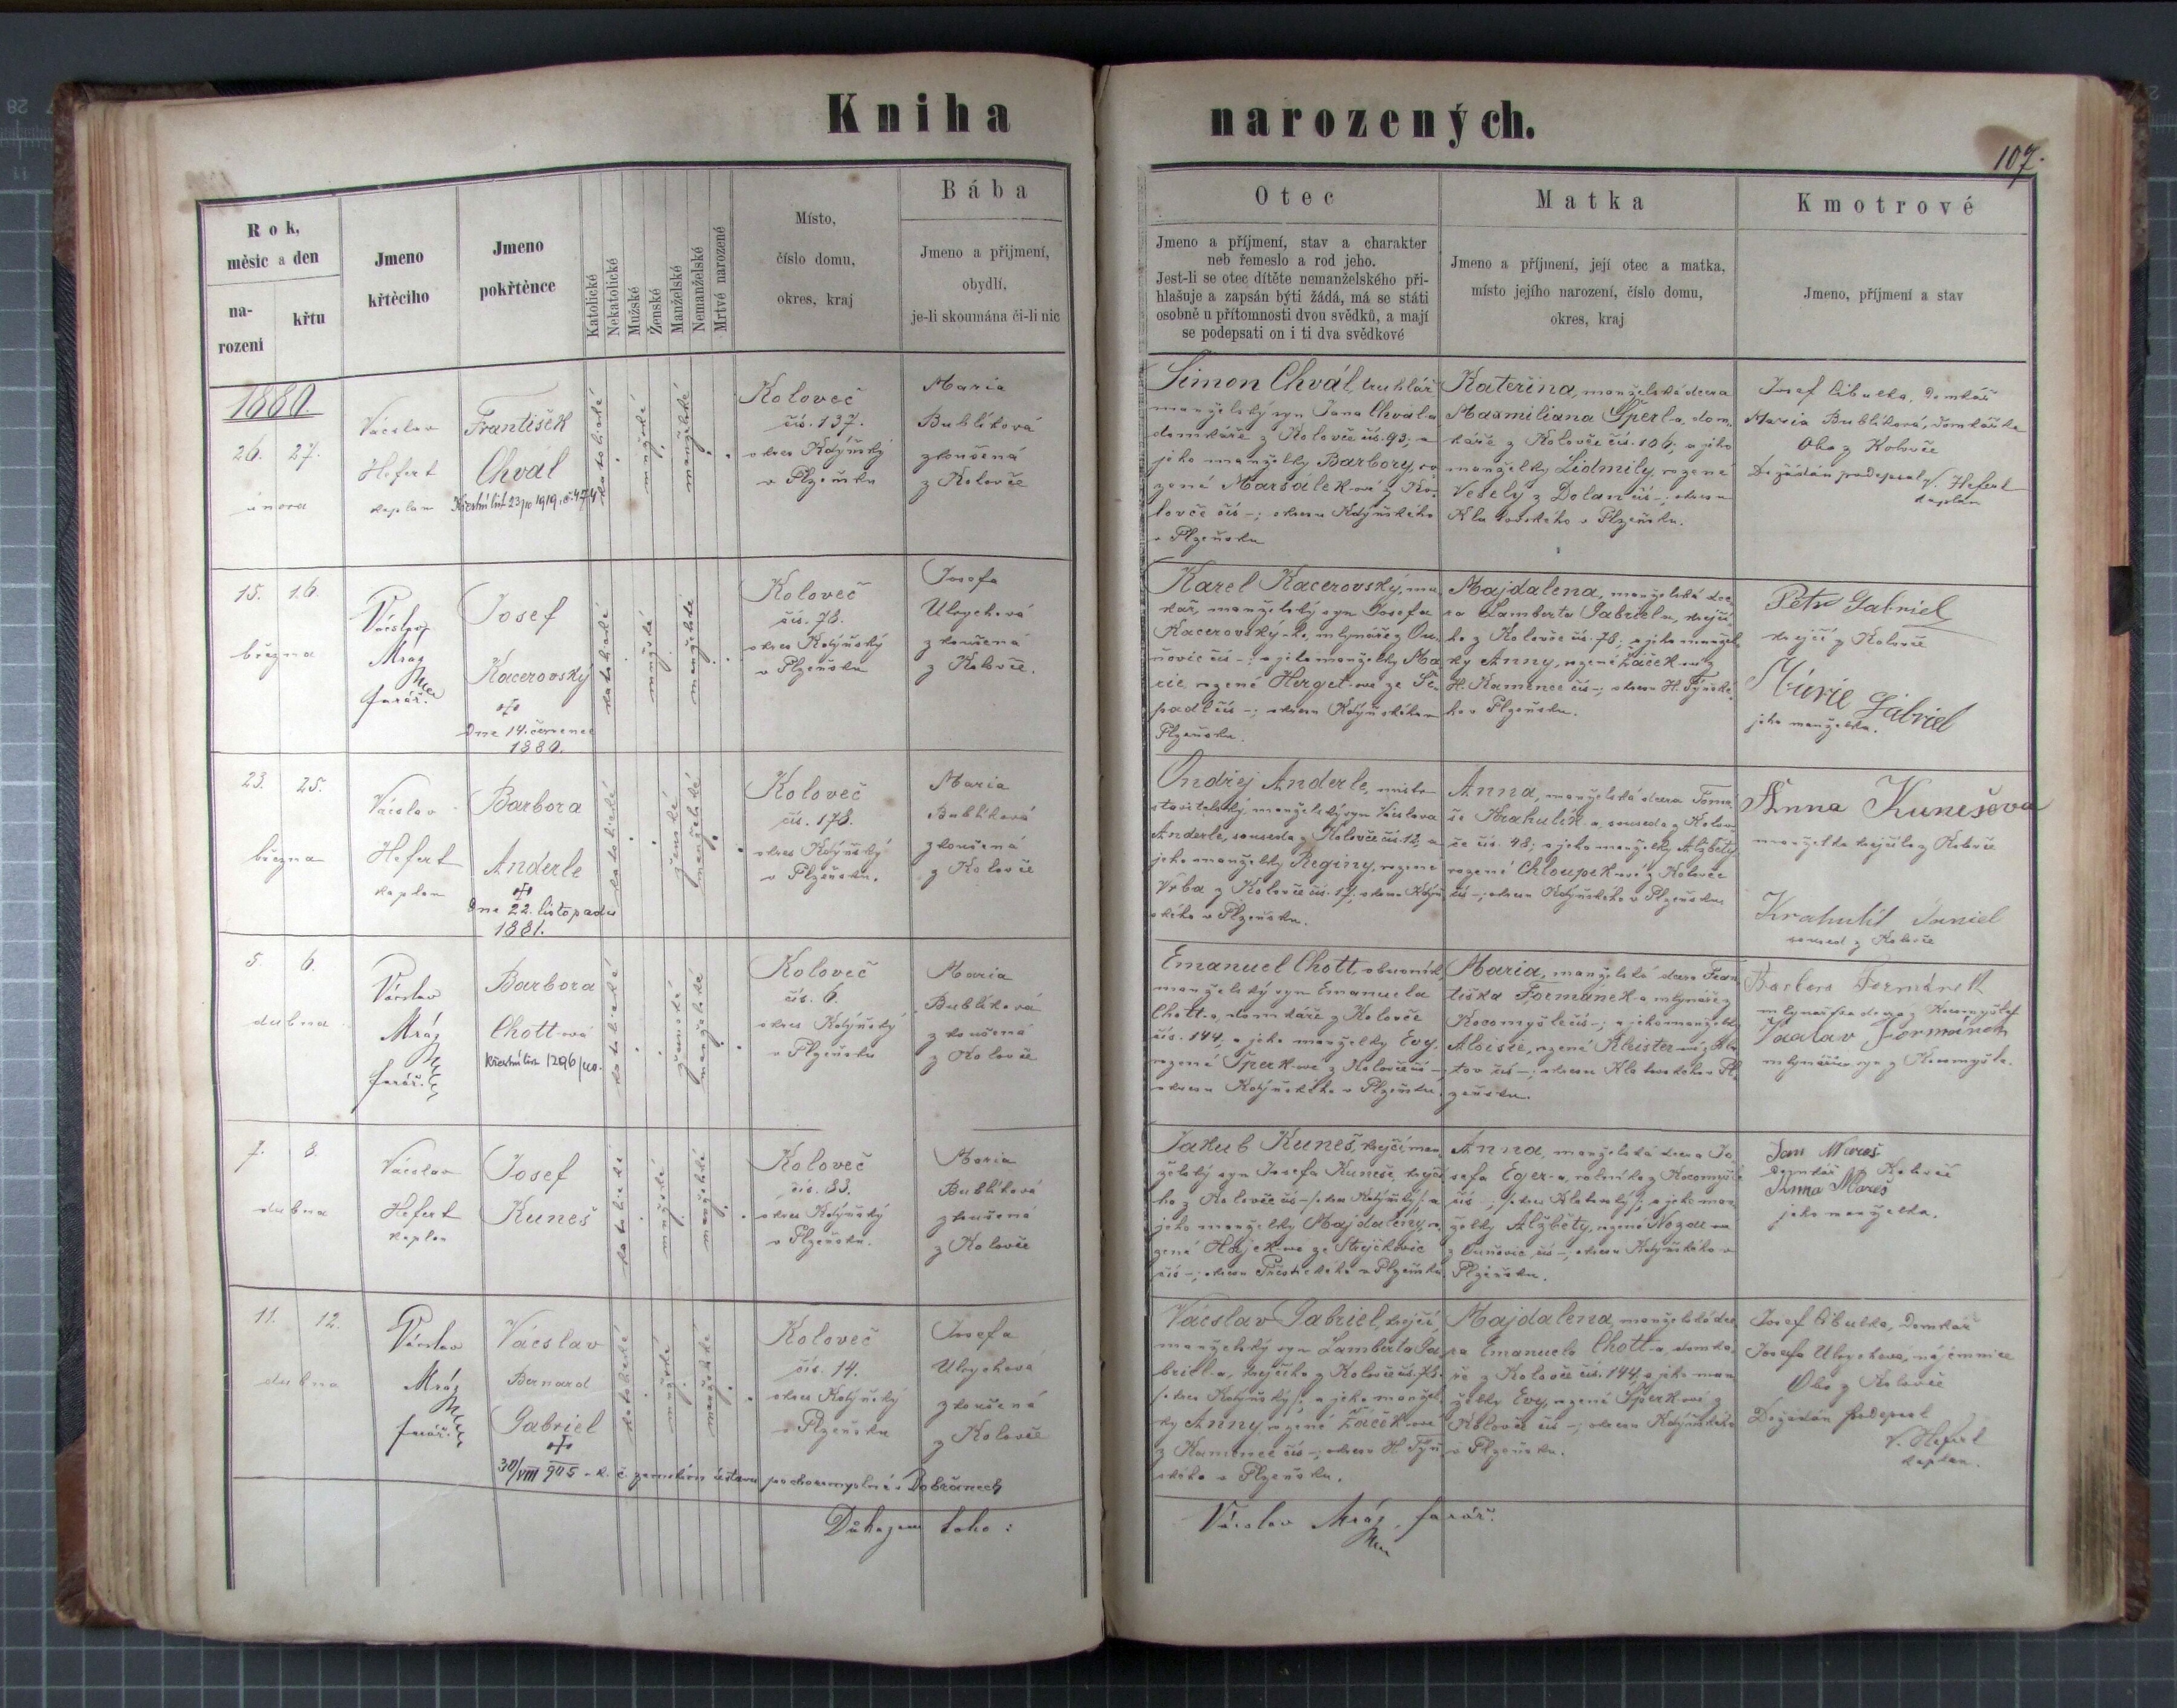 Kniha
narozených.
107.
Rok,
měsíc a den
na-
rození
křtu
Jmeno
křtěcího
Jmeno
pokřtěnce
Katolické
Nekatolické
Mužské
Ženské
Manželské
Nemanželské
Mrtvě narozené
Místo,
číslo domu,
okres, kraj
Bába
Jmeno a příjmení,
obydlí,
je-li skoumána či-li nic
Otec
Jmeno a příjmení, stav a charakter
neb řemeslo a rod jeho.
Jest-li se otec dítěte nemanželského při-
hlašuje a zapsán býti žádá, má se státi
osobně u přítomnosti dvou svědků, a mají
se podepsati on i ti dva svědkové
Matka
Jmeno a příjmení, její otec a matka,
místo jejího narození, číslo domu,
okres, kraj
Kmotrové
Jmeno, příjmení a stav
1880.
26. 27.
února
Václav
Hefert
kaplan
František
Chvál
katolické
mužské
manželské
Koloveč
čís. 137.
okres Kdýňský
v Plzeňsku
Maria
Bublíková
zkoušená
z Kolovče
Šimon Chvál, truhlář
manželský syn Jana Chvála
domkáře z Kolovče čís. 93; a
jeho manželky Barbory, ro
zené Maršálek-ové z Ko-
lovče čís -; okresu Kdýňského
v Plzeňsku
Kateřina, manželská dcera
Maxmiliana Šperl-a, dom-
káře z Kolovče čís. 106; a jeho
manželky Lidmily, rozené
Veselý z Dolan čís -; okresu
Klatovského v Plzeňsku.
Josef Cibulka, domkář
Maria Bublíková, domkářka
Oba z Kolovče
Dožádán podepsal V. Hefert
kaplan
15. 16.
března
Václav
Mráz
farář.
Josef
Kacerovský
Dne 14. července
1880.
katolické
mužské
manželské
Koloveč
čís. 78.
okres Kdýňský
v Plzeňsku
Josefa
Ulrychová
zkoušená
z Kolovče.
Karel Kacerovský,
manželský syn Josefa
Kacerovský-ho, mlynáře z
čís -; a jeho manželky Ma
rie, rozené Herget-ové ze
čís -; okresu Kdýňského v
Plzeňsku.
Majdalena, manželská dce-
ra Lamberta Gabriel-a, krejčí-
ho z Kolovče čís. 78; a jeho manžel
ky Anny, rozené Žáček-ové z
H. Kamence čís -; okresu H. Týnské-
ho v Plzeňsku.
Petr Gabriel
krejčí z Kolovče
Marie Gabriel
jeho manželka.
23. 25.
března
Václav
Hefert
kaplan
Barbora
Anderle
Dne 22. listopadu
1881.
katolické
ženské
manželské
Koloveč
čís. 178.
okres Kdýňský
v Plzeňsku.
Maria
Bublíková
zkoušená
z Kolovče
Ondřej Anderle, mistr
stavitelský, manželský syn Václava
Anderle, souseda z Kolovče čís. 12; a
jeho manželky Reginy, rozené
Vrba z Kolovče čís. 17; okresu Kdýň
ského v Plzeňsku.
Anna, manželská dcera Tomá
še Krahulík-a, souseda z Kolov-
če čís. 48; a jeho manželky Alžběty,
rozené Chloupek-ové z Kolovče
čís -; okresu Kdýňského v Plzeňsku
Anna Kunešova
manželka krejčího z Kolovče
Krahulík Daniel
soused z Kolovče
5. 6.
dubna
Václav
Mráz
farář.
Barbora
Chott-ová
katolické
ženské
manželské
Koloveč
čís. 6.
okres Kdýňský
v Plzeňsku
Maria
Bublíková
zkoušená
z Kolovče
Emanuel Chott, obuvník,
manželský syn Emanuela
Chott-a, domkáře z Kolovče
čís. 144, a jeho manželky Evy,
rozené Šperk-ové z Kolovče čís -;
okresu Kdýňského v Plzeňsku.
Maria, manželská dcera Fran
tiška Formánek-a mlynáře z
Kocomyšle čís -; a jeho manželky
Aloisie, rozené Kleister-ové z Kla
tov čís -; okresu Klatovského v Pl-
zeňsku.
Barbora Formánek
Václav Formánek
mlynářův syn z Kocomyšle.
7. 8.
dubna
Václav
Hefert
kaplan
Josef
Kuneš
katolické
mužské
manželské
Koloveč
čís. 83.
okres Kdýňský
v Plzeňsku.
Maria
Bublíková
zkoušená
z Kolovče
Jakub Kuneš, krejčí man-
želský syn Josefa Kuneše, krejčí-
ho z Kolovče čís - /okres Kdýňský/, a
jeho manželky Majdaleny, ro
zené Hájek-ové ze Strejčkovic
čís -; okresu Přeštického v Plzeňsku.
Anna, manželská dcera Jo
sefa Eger-a, rolníka z Kocomyšle
čís -; /okres Klatovský/; a jeho man
želky Alžběty, rozené
čís -, okresu Kdýňského v
Plzeňsku.
Jan Mareš
domkář z Kolovče
Anna Mareš
jeho manželka.
11. 12.
dubna
Václav
Mráz
farář.
Václav
Bernard
Gabriel
katolické
mužské
manželské
Koloveč
čís. 14.
okres Kdýňský
v Plzeňsku
Josefa
Ulrychová
zkoušená
z Kolovče
Václav Gabriel, krejčí,
manželský syn Lamberta Ga
briel-a, krejčího z Kolovče čís. 78.
/okres Kdýňský/; a jeho manžel
ky Anny, rozené Žáček-ové
z Kamence čís -; okresu H. Týn
ského v Plzeňsku.
Majdalena, manželská dce
ra Emanuela Chott-a, domká-
ře z Kolovče čís. 144, a jeho man
želky Evy, rozené Šperk-ové z
Kolovče čís -; okresu Kdýňského
v Plzeňsku.
Josef Cibulka, domkář
Josefa Ulrychova, nájemnice
Oba z Kolovče
Dožádán podepsal
V. Hefert
kaplan.
30/VIII 905 - z. č. zemském ústavu pro choromyslné v Dobřanech
Důkazem toho:
Václav Mráz, farář.